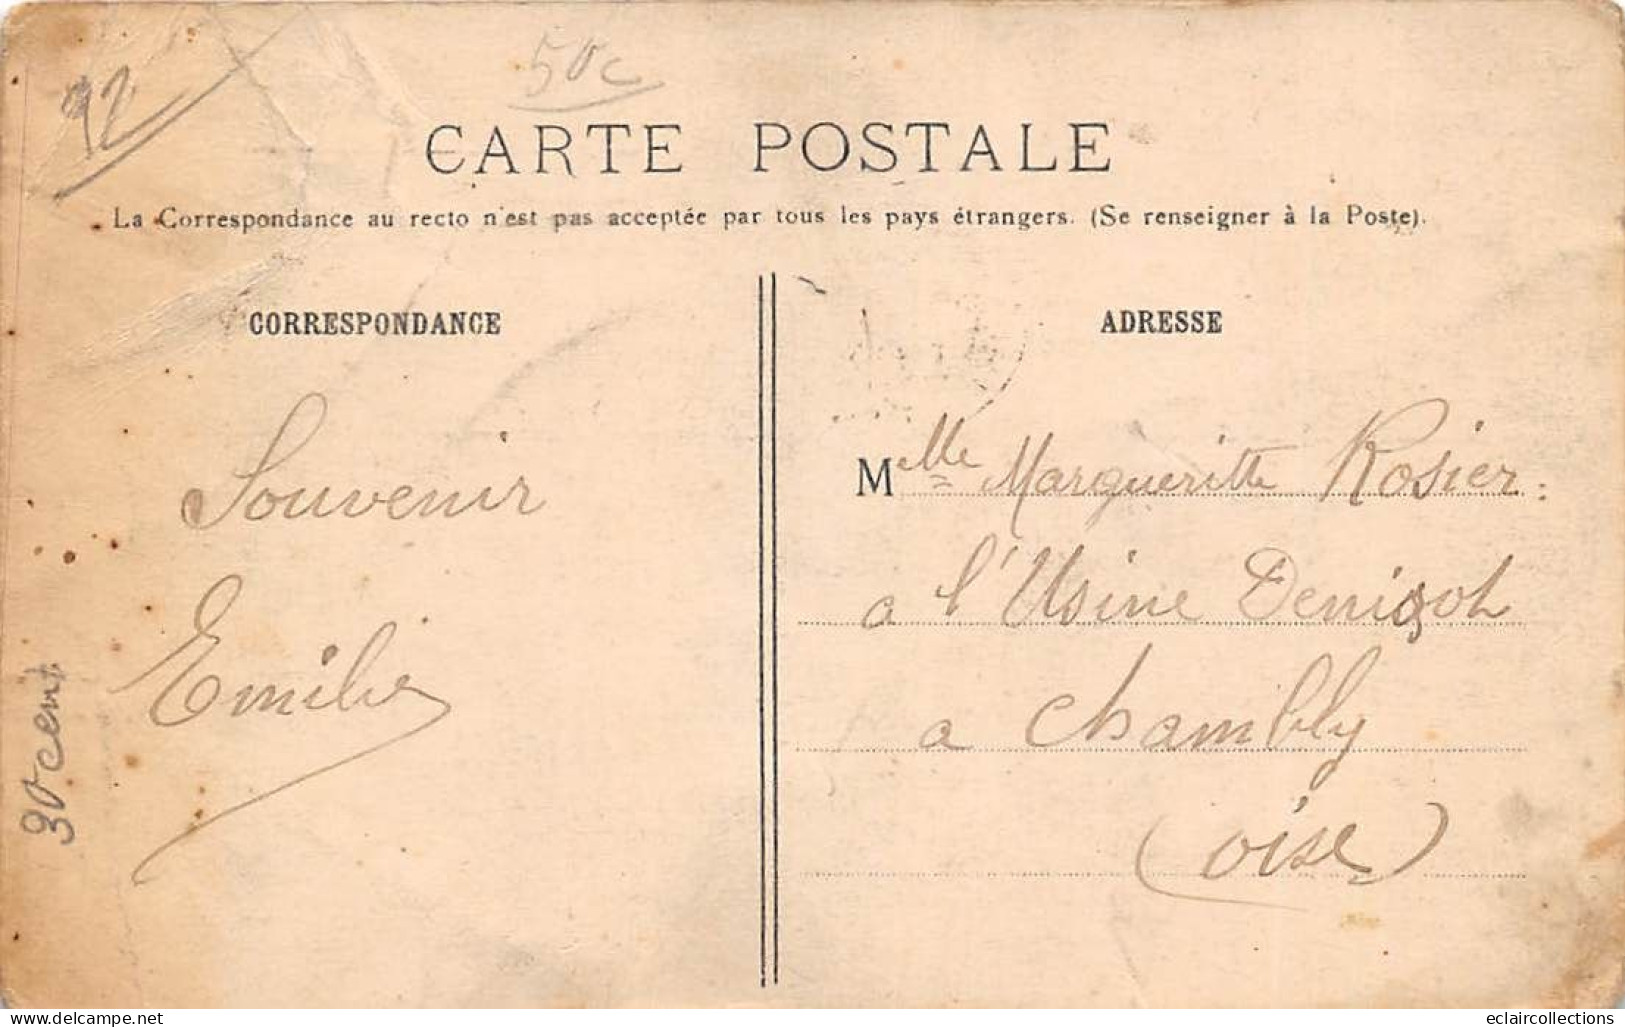 92
50c
CARTE POSTALE
La Correspondance au recto n'est pas acceptée par tous les pays étrangers. (Se renseigner à la Poste).
CORRESPONDANCE
Souvenir
Emilie
30 cent
ADRESSE
Melle Margueritte Rosier
a l'Usine Denisot
a Chambly
(Oise)
www.delcampe.net
eclaircollections